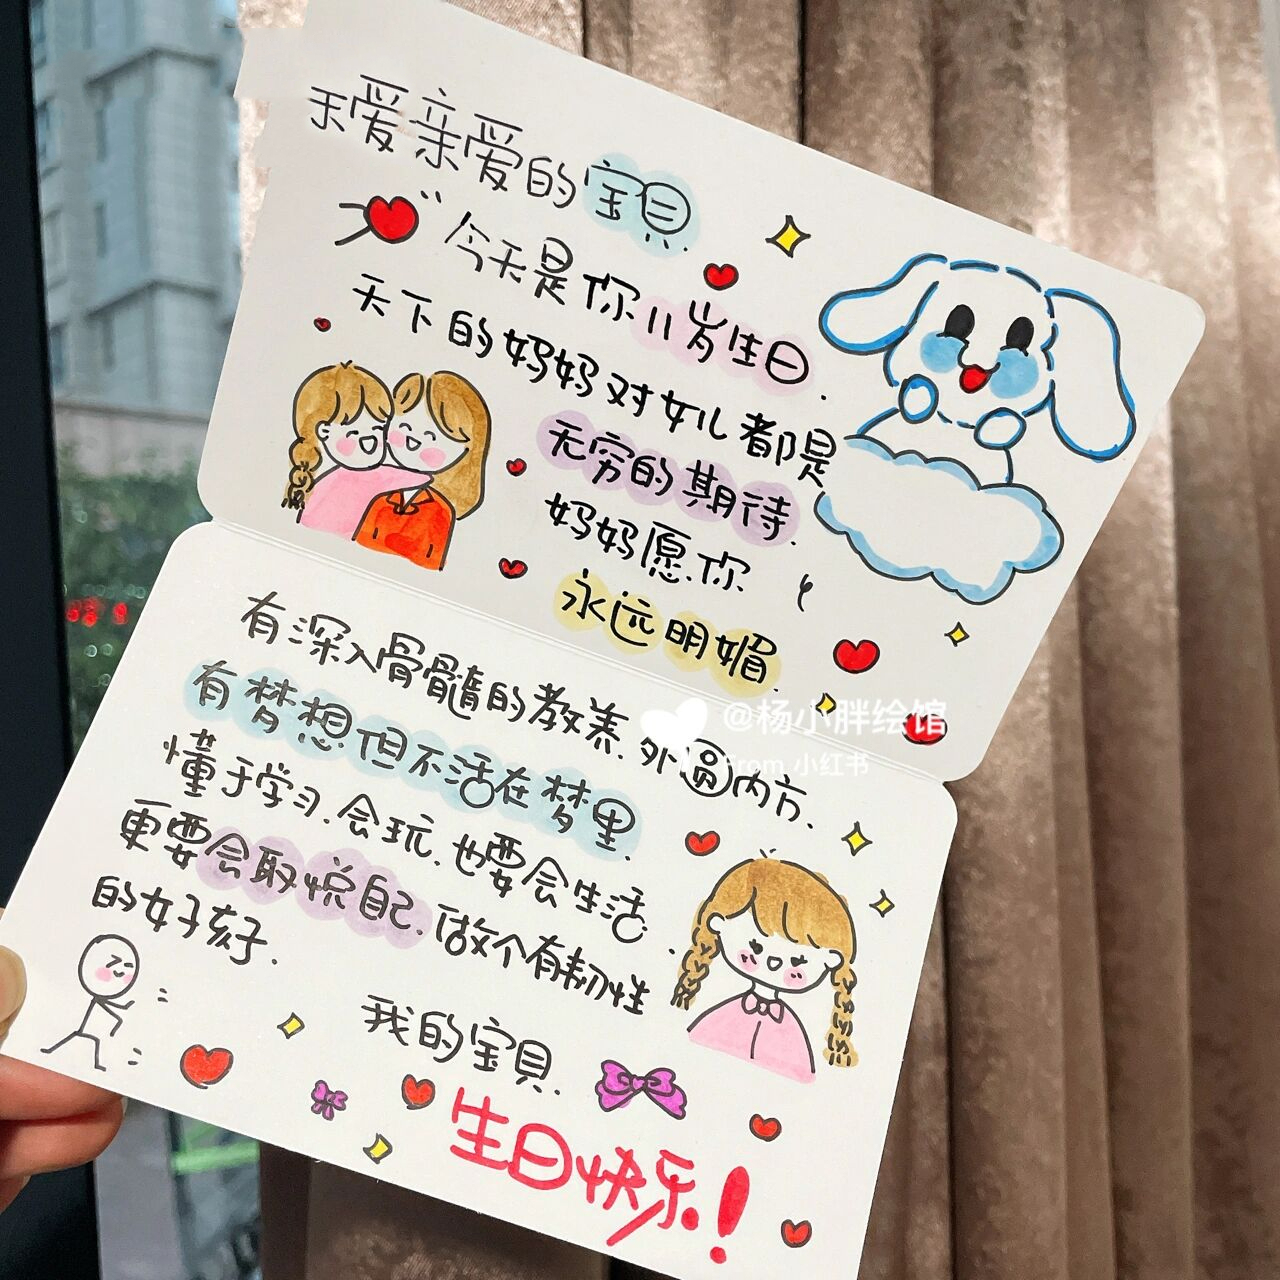 亲爱的宝贝.
今天是你11岁生日.
天下的妈妈对女儿都是
无穷的期待.
妈妈愿你
永远明媚.
有深入骨髓的教养.外圆内方.
有梦想但不活在梦里.
懂于学习.会玩.也要会生活.
更要会取悦自己.做个有韧性
的好孩子.
我的宝贝.
生日快乐!
@杨小胖绘馆
From 小红书